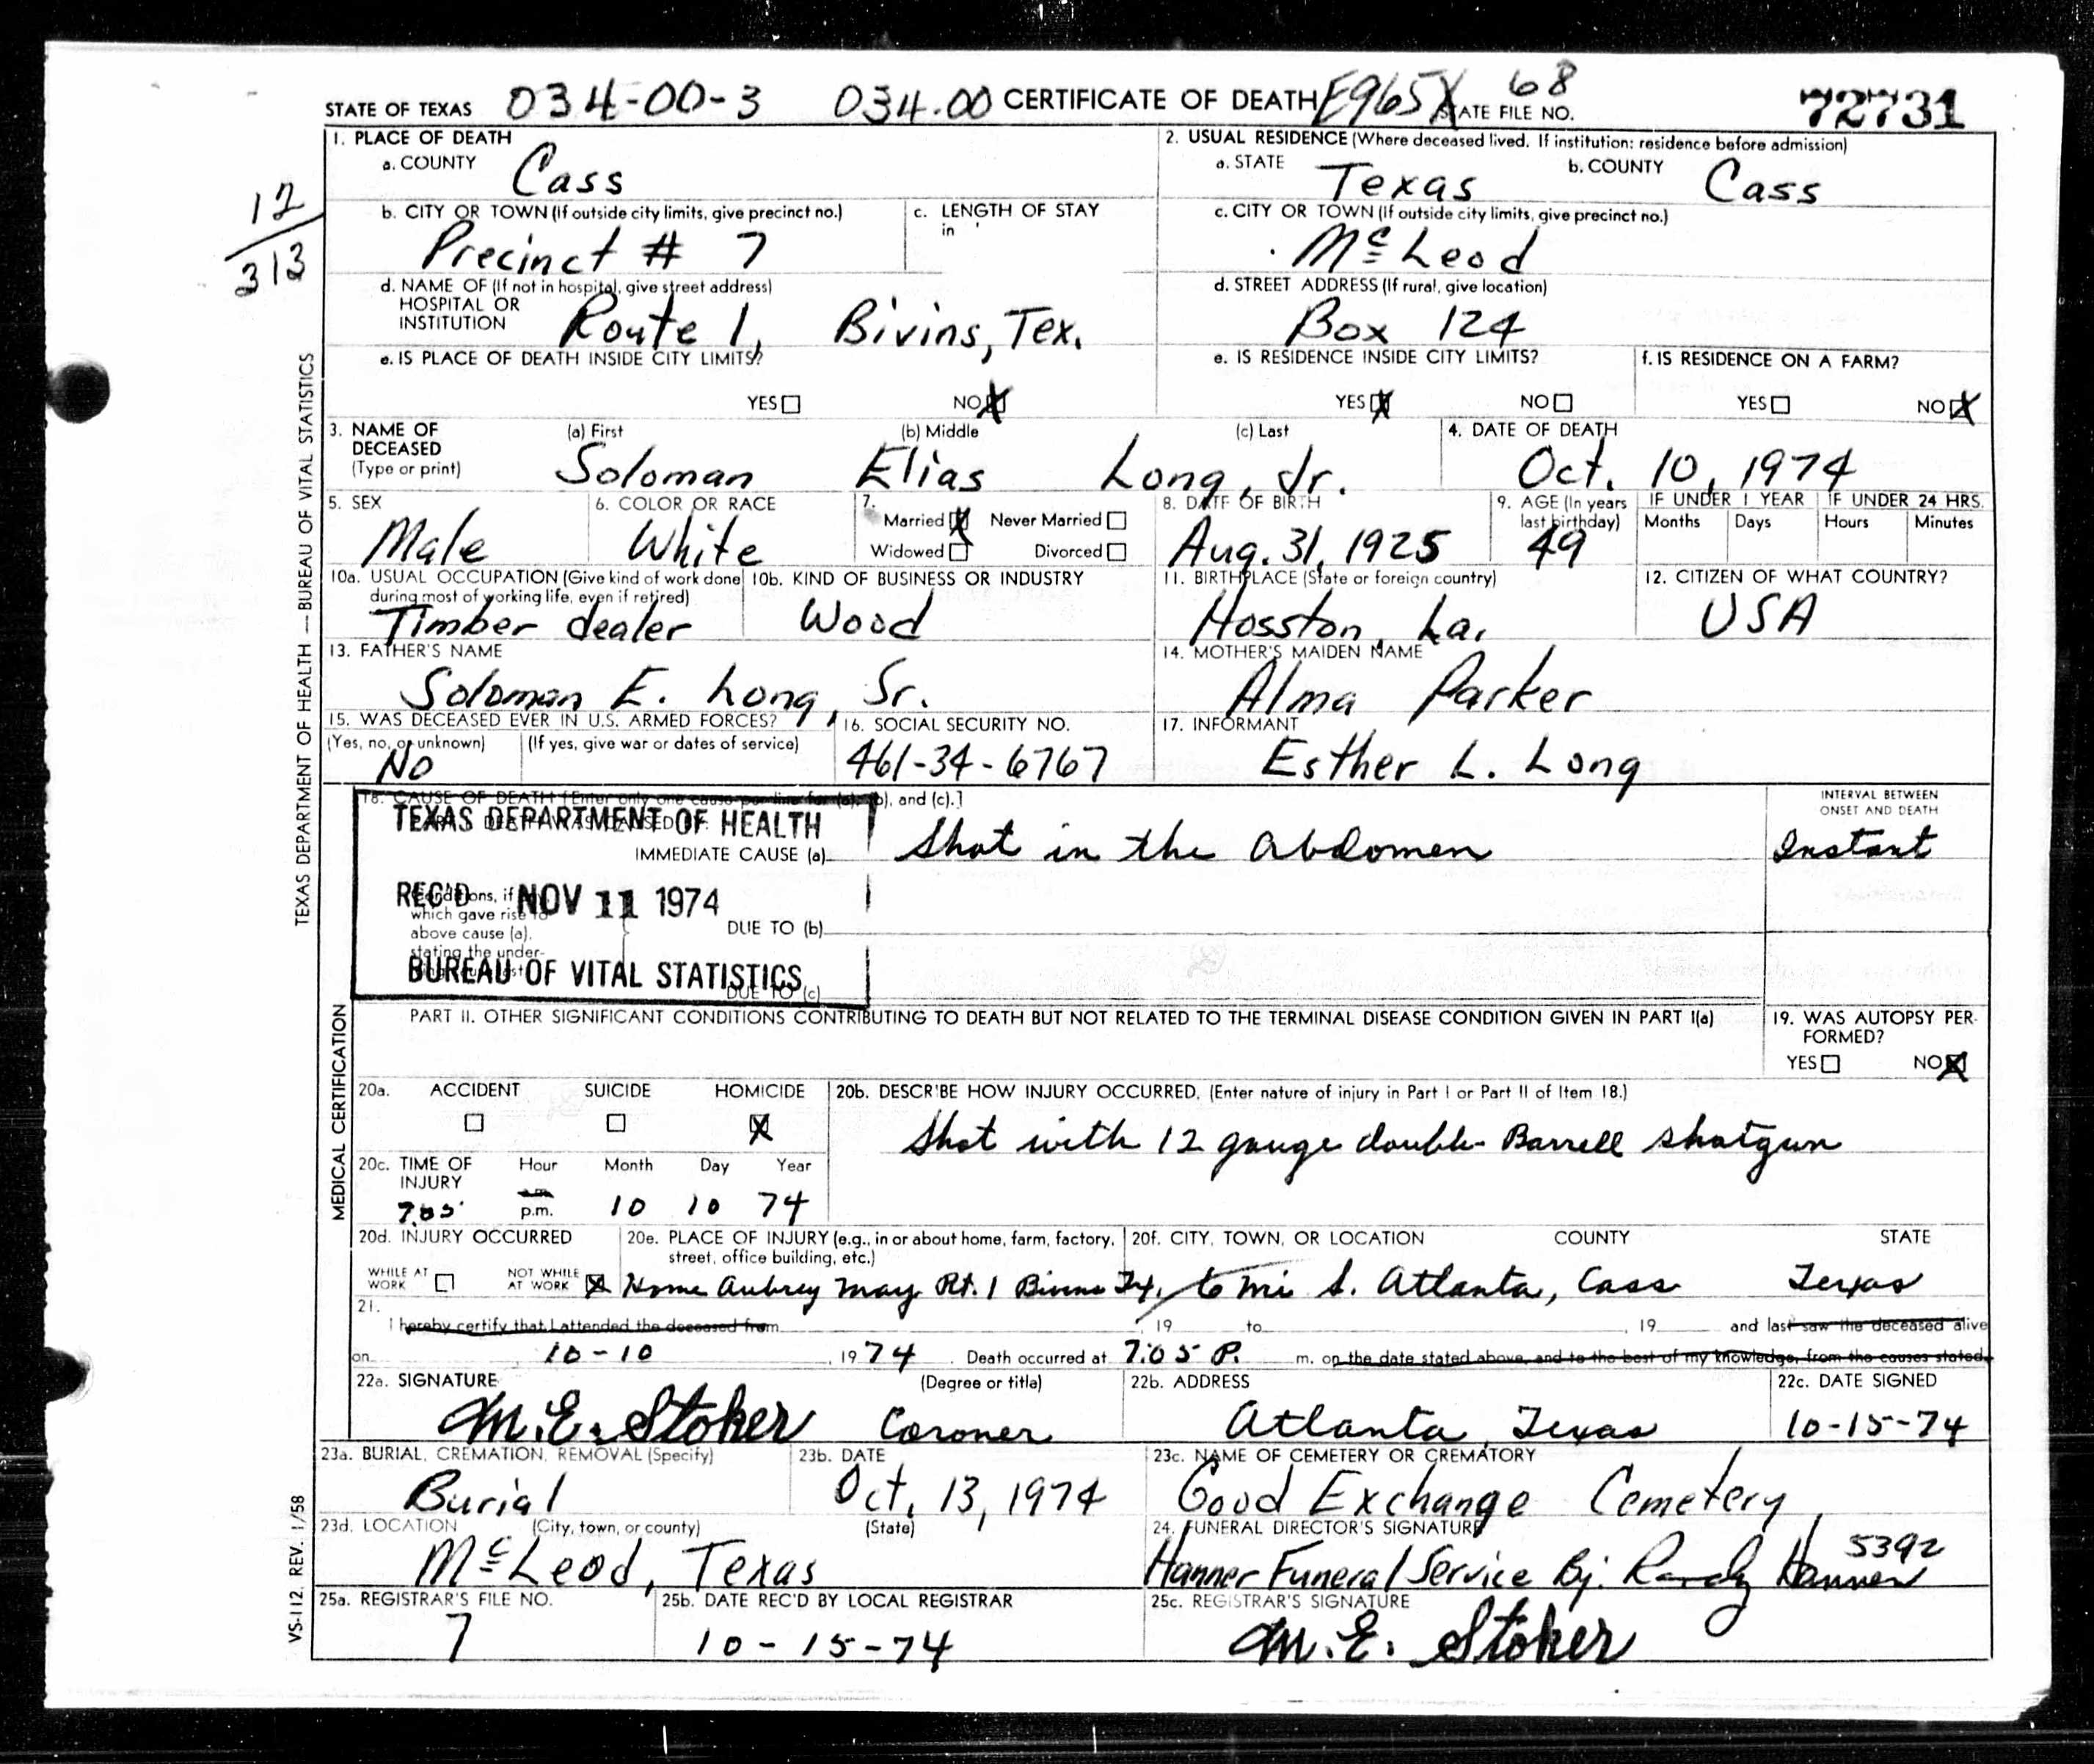 STATE OF TEXAS 034-00-3 034.00 CERTIFICATE OF DEATH E965X STATE FILE NO. 68 72731
12
313
TEXAS DEPARTMENT OF HEALTH — BUREAU OF VITAL STATISTICS
1. PLACE OF DEATH
a. COUNTY Cass
2. USUAL RESIDENCE (Where deceased lived. If institution: residence before admission)
a. STATE Texas b. COUNTY Cass
b. CITY OR TOWN (If outside city limits, give precinct no.) Precinct # 7
c. LENGTH OF STAY in
c. CITY OR TOWN (If outside city limits, give precinct no.) McLeod
d. NAME OF (If not in hospital, give street address) HOSPITAL OR INSTITUTION Route 1, Bivins, Tex.
d. STREET ADDRESS (If rural, give location) Box 124
e. IS PLACE OF DEATH INSIDE CITY LIMITS? YES NO X
e. IS RESIDENCE INSIDE CITY LIMITS? YES X NO
f. IS RESIDENCE ON A FARM? YES NO X
3. NAME OF DECEASED (Type or print) (a) First (b) Middle (c) Last
Soloman Elias Long, Jr.
4. DATE OF DEATH Oct. 10, 1974
5. SEX Male
6. COLOR OR RACE White
7. Married X Never Married Widowed Divorced
8. DATE OF BIRTH Aug. 31, 1925
9. AGE (In years last birthday) 49
IF UNDER 1 YEAR Months Days
IF UNDER 24 HRS. Hours Minutes
10a. USUAL OCCUPATION (Give kind of work done during most of working life, even if retired) Timber dealer
10b. KIND OF BUSINESS OR INDUSTRY Wood
11. BIRTHPLACE (State or foreign country) Hosston, La.
12. CITIZEN OF WHAT COUNTRY? USA
13. FATHER'S NAME Soloman E. Long, Sr.
14. MOTHER'S MAIDEN NAME Alma Parker
15. WAS DECEASED EVER IN U.S. ARMED FORCES?
(Yes, no, or unknown) No (If yes, give war or dates of service)
16. SOCIAL SECURITY NO. 461-34-6767
17. INFORMANT Esther L. Long
18. CAUSE OF DEATH [Enter only one cause per line for (a), (b), and (c).]
INTERVAL BETWEEN ONSET AND DEATH
TEXAS DEPARTMENT OF HEALTH
IMMEDIATE CAUSE (a) Shot in the abdomen Instant
REC'D NOV 11 1974
Conditions, if
which gave rise to
above cause (a),
stating the under-
DUE TO (b)
BUREAU OF VITAL STATISTICS
DUE TO (c)
MEDICAL CERTIFICATION
PART II. OTHER SIGNIFICANT CONDITIONS CONTRIBUTING TO DEATH BUT NOT RELATED TO THE TERMINAL DISEASE CONDITION GIVEN IN PART I(a)
19. WAS AUTOPSY PERFORMED? YES NO X
20a. ACCIDENT SUICIDE HOMICIDE X
20b. DESCRIBE HOW INJURY OCCURRED. (Enter nature of injury in Part I or Part II of Item 18.)
Shot with 12 gauge double-Barrell shotgun
20c. TIME OF INJURY Hour Month Day Year
7:05 a.m. p.m. 10 10 74
20d. INJURY OCCURRED
WHILE AT WORK NOT WHILE AT WORK X
20e. PLACE OF INJURY (e.g., in or about home, farm, factory, street, office building, etc.)
Home Aubrey May Rt. 1 Bivins Tx.
20f. CITY, TOWN, OR LOCATION COUNTY STATE
mi S. Atlanta, Cass Texas
21. I hereby certify that I attended the deceased from , 19 to , 19 and last saw the deceased alive
on 10-10 , 1974 . Death occurred at 7:05 P. m. on the date stated above, and to the best of my knowledge, from the causes stated.
22a. SIGNATURE (Degree or title) M.E. Stoker Coroner
22b. ADDRESS Atlanta, Texas
22c. DATE SIGNED 10-15-74
23a. BURIAL, CREMATION, REMOVAL (Specify) Burial
23b. DATE Oct. 13, 1974
23c. NAME OF CEMETERY OR CREMATORY Good Exchange Cemetery
23d. LOCATION (City, town, or county) (State) McLeod, Texas
24. FUNERAL DIRECTOR'S SIGNATURE Hanner Funeral Service By: Randy Hanner 5392
25a. REGISTRAR'S FILE NO. 7
25b. DATE REC'D BY LOCAL REGISTRAR 10-15-74
25c. REGISTRAR'S SIGNATURE M.E. Stoker
VS-112 REV. 1/58